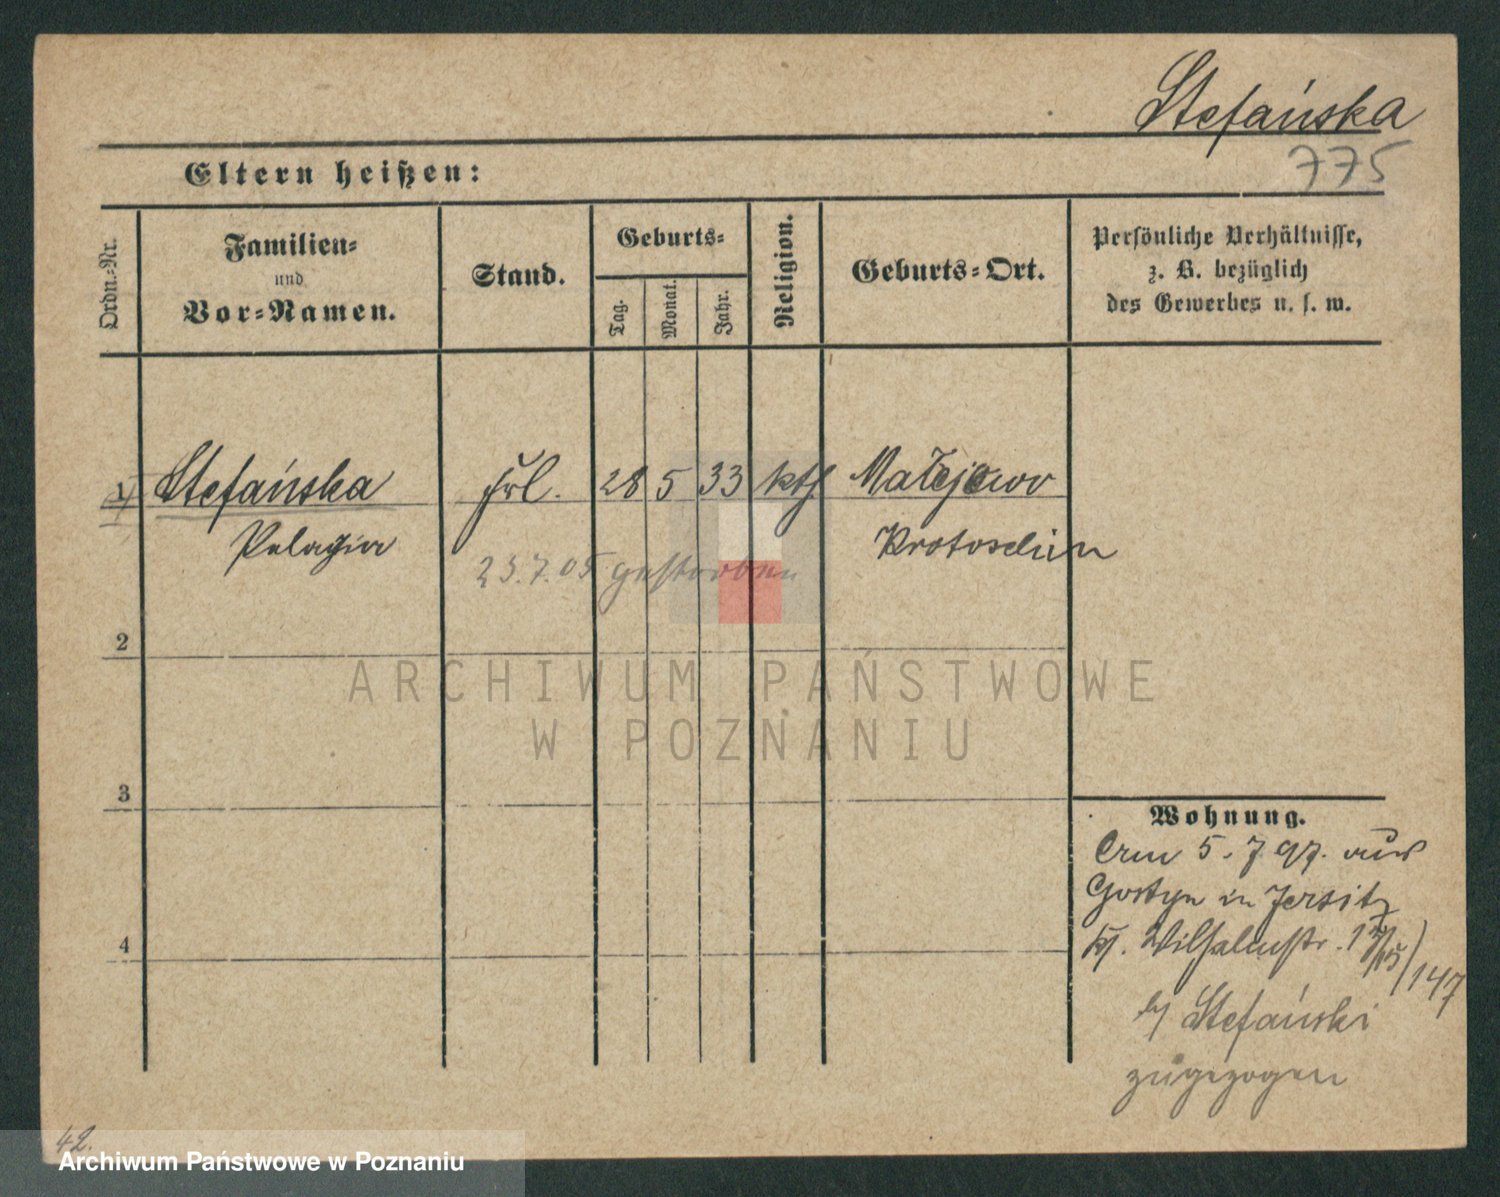 Stefańska
775
Eltern heißen:
Ordn.-Nr.
Familien-
und
Vor-Namen.
Stand.
Geburts-
Tag.
Monat.
Jahr.
Religion.
Geburts-Ort.
Persönliche Verhältnisse,
z. B. bezüglich
des Gewerbes u. s. w.
1 Stefańska frl. 28 5 33 kth Matejewo
Pelagia Krotoschin
23.7.05 gestorben
2
ARCHIWUM PAŃSTWOWE
W POZNANIU
3
Wohnung.
5.7.97. aus
Gostyn in Jersitz
Wilhelmstr.
147
4
b/ Stefański
zugezogen
42.
Archiwum Państwowe w Poznaniu